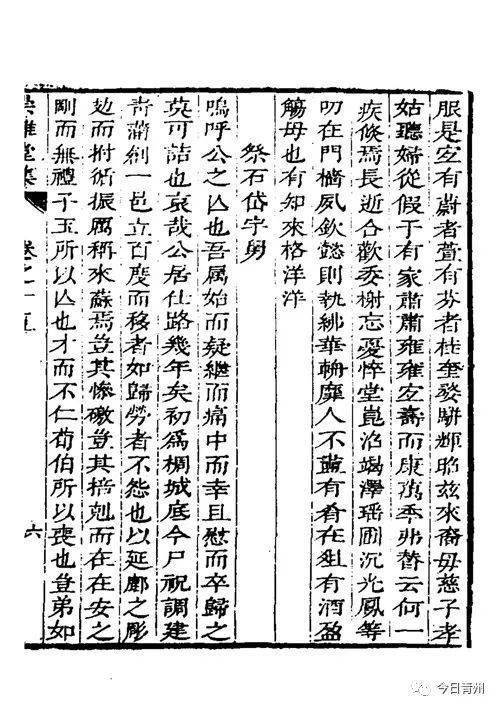 服是宜有蔚者萱有芬者桂奎婺駢輝昭兹來裔母慈子孝
姑聽婦從假于有家肅肅雍雍宜壽而康萬年弗替云何一
疾倏焉長逝合歡委榭忘憂悴堂崑竭澤瑶圃沉光鳳等
叨在門檣夙欽懿則執紼華輈靡人不有肴在俎有酒盈
觴母也有知來格洋洋
祭石岱宇舅
嗚呼公之亡也吾属始而疑繼而痛中而幸且慰而卒歸之
莫可詰也哀哉公居仕路幾年矣初爲桐城底今尸祝調建
青蕭創一邑立百度而移者如歸勞者不怨也以延鄜之彫
攰而拊循振厲稱來蘇焉豈其慘礉豈其掊剋而在在安之
剛而無禮子玉所以亡也才而不仁荀伯所以喪也豈弟如
雅堂集
卷之十
六
今日青州